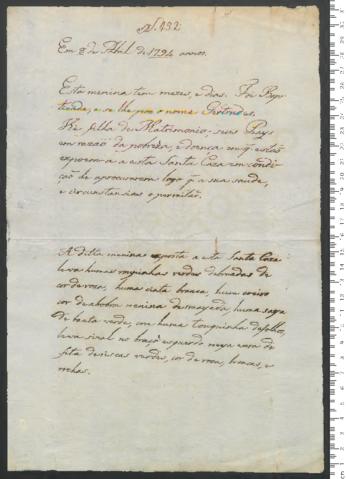 N. 132
Em 8 de Abril de 1794 annos.
Esta menina tem mezes, e dias. Foi Bap
tizada, e se lhe poz o nome Gertrudes.
He filha de Matrimonio; seus Pays
em razão da pobreza, e doença em q. estão
expozerão a a esta Santa Caza em condi
ção de a procurarem logo q. a sua saude,
e circunstancias o permitão.
A ditta menina exposta a esta Santa Caza
leva humas roupinhas verdes debruadas de
cor de roza, huma cinta branca, hum coeiro
cor de abobra menina desmayada, huma saya
de baeta verde, com huma touquinha de folho,
leva sinal no braço esquerdo meya vara de
fita de riscas verdes, cor de roza, brancas, e
roxas.